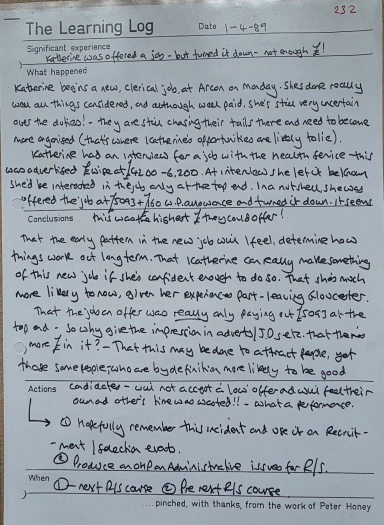 232
The Learning Log Date 1-4-89
Significant experience
Katherine was offered a job - but turned it down - not enough £!
What happened
Katherine begins a new, clerical job, at Arcon on Monday. She's done really
well all things considered, and although well paid. She's still very uncertain
over the duties! - they are still chasing their tails there and need to become
more organised (that's where Katherine's opportunities are likely to lie).
Katherine had an interview for a job with the health service - this
was advertised £ wise at £4200 - 6,200. At interview she let it be known
she'd be interested in the job only at the top end. In a nutshell, she was
offered the job at £5093 + £160 w.p. allowance and turned it down. It seems
this was the highest £ they could offer!
Conclusions
That the early pattern in the new job will I feel, determine how
things work out long term. That Katherine can really make something
of this new job if she's confident enough to do so. That she's much
more likely to now, given her experiences post-leaving Gloucester.
That the job on offer was really only paying out £5093 at the
top end - so why give the impression in adverts/J.D.s etc. that there's
more £ in it? - That this may be done to attract people, yet
those same people, who are by definition more likely to be good
candidates - will not accept a low offer and will feel their
own and other's time was wasted!! - what a performance.
Actions
① Hopefully remember this incident and use it on Recruit-
ment/selection events.
② Produce an ohp on Administrative issues for R/S.
When ① - next R/S course ② Pre next R/S course
....pinched, with thanks, from the work of Peter Honey